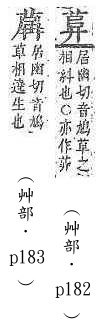 居幽切音鳩草之
相糾也○亦作
（艸部・p182）
居幽切音鳩
草相遶生也
（艸部・p183）